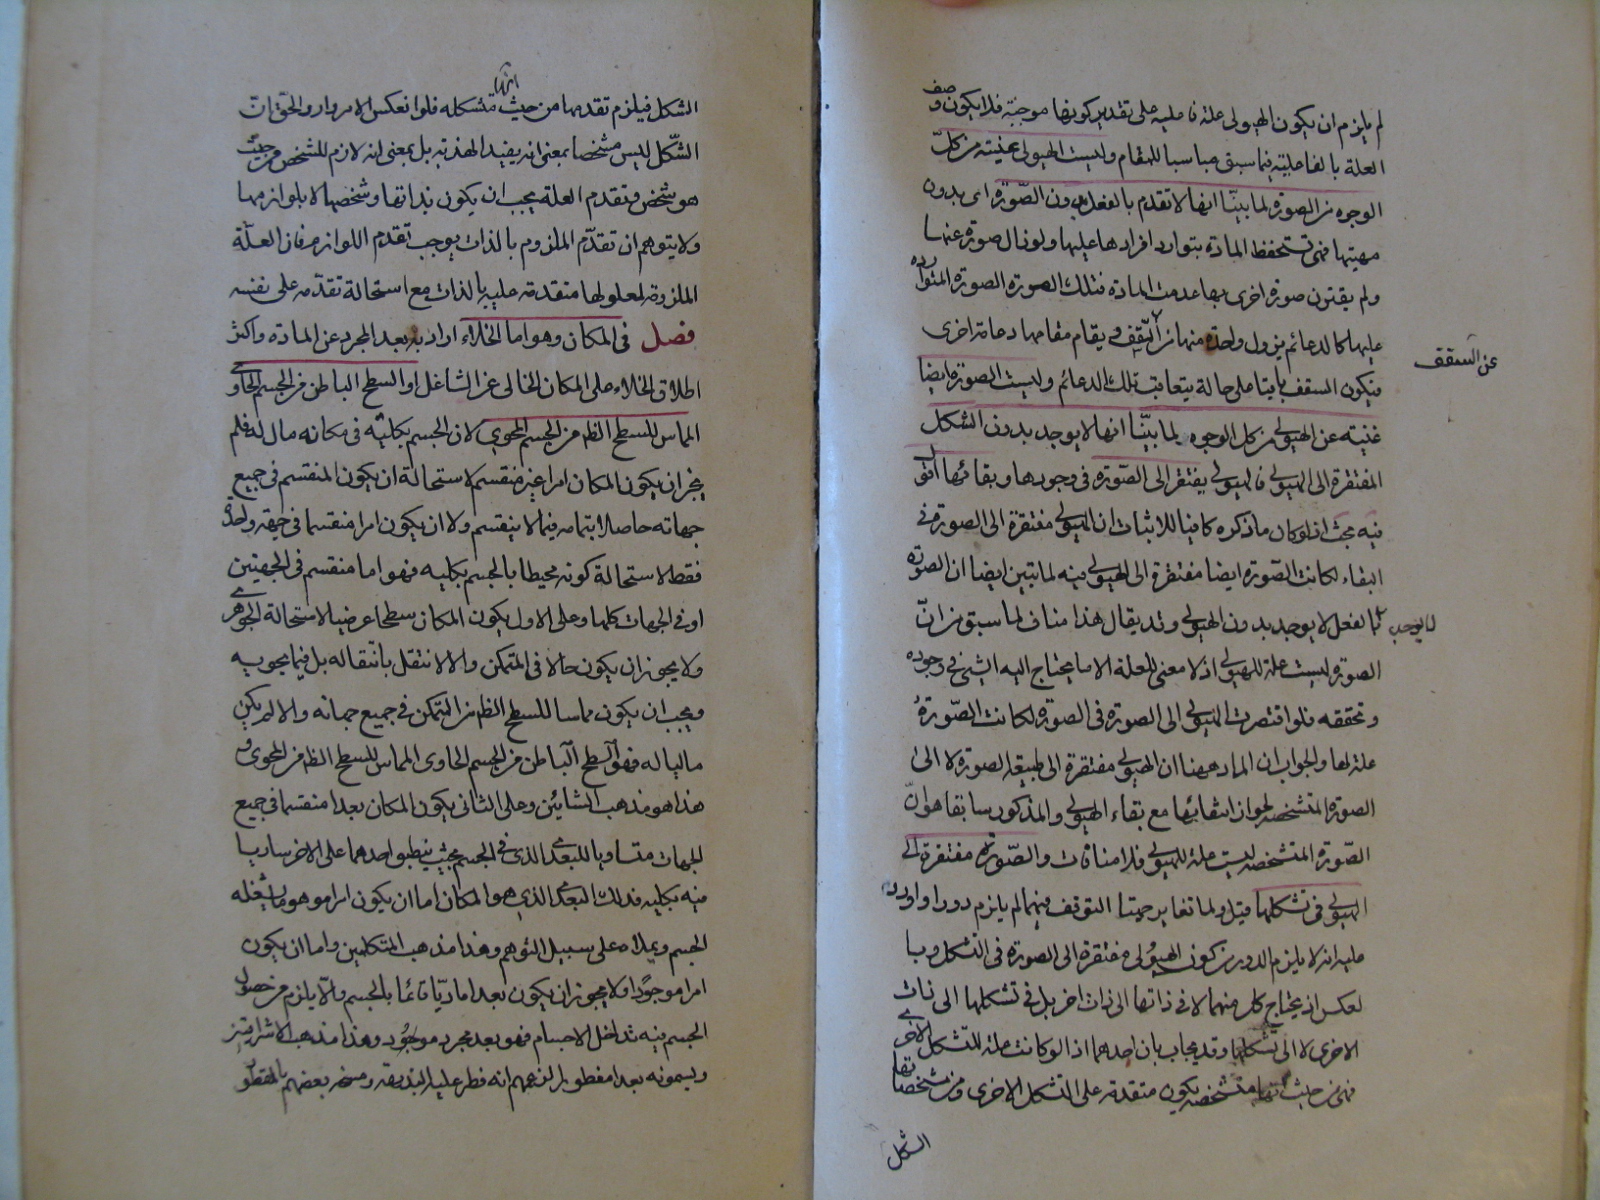 لم يلزم ان يكون الهيولى علة فاعلية على تقدير كونها موجبة فلا يكون وصف
العلة بالفاعلية فيما سبق مناسبا للمقام وليست الهيولى غنية من كل
الوجوه من الصورة لما بينّا انها لا تقدم بالفعل بدون الصّورة اى بدون
مهيتها فهى تستحفظ المادة بتوارد افرادها عليها ولو زال صورة عنها
ولم يقترن صورة اخرى بها عدمت المادة فتلك الصورة الصورة المتواردة
عليها كالدعائم يزول واحدة منها من السّقف ويقام مقامها دعامة اخرى
عن السقف
فيكون السقف باقيا على حاله يتعاقب تلك الدعائم وليست الصورة ايضا
غنية عن الهيولى من كل الوجوه لما بينّا انها لا يوجد بدون الشكل
المفتقرة الى الهيولى فالهيولى يفتقر الى الصّورة فى وجودها وبقائها
فيه بحث اذ لو كان ما ذكره كافيا للاثبات ان الهيولى مفتقرة الى الصورة فى
البقاء لكانت الصّورة ايضا مفتقرة الى الهيولى فيه لما تبين ايضا ان الصورة
بالفعل لا يوجد بدون الهيولى وقد يقال هذا مناف لما سبق من انّ
لا يوجب
الصورة ليست علة للهيولى اذ لا معنى للعلة الا ما يحتاج اليه الشئ فى وجوده
وتحققه فلو افتقرت الهيولى الى الصورة فى الصورة لكانت الصّورة
علة لها والجواب ان المراد ههنا ان الهيولى مفتقرة الى طبيعة الصورة لا الى
الصورة المتشخصة لجواز انتفائها مع بقاء الهيولى والمذكور سابقا هو انّ
الصّورة المتشخصة ليست علة للهيولى فلا منافات والصّورة مفتقرة الى
الهيولى فى تشكلها قيل ولما تغاير جهتا التوقف فيهما لم يلزم دور او اورد
عليه انه لا يلزم الدور من كون الهيولى مفتقرة الى الصورة فى التشكل وبا
لعكس ان يحتاج كل منهما لا فى ذاتها الى ذات اخر بل فى تشكلها الى ذات
الاخرى لا الى تشكلها وقد يجاب بان احدهما اذا لو كانت علة لتشكل الاخرى
فهى من حيث انها متشخصة يكون متقدمة على التشكل الاخرى ومن مشخصاتها
الشكل
انها
الشكل فيلزم تقدمها من حيث متشكله فلو انعكس الامر دار والحق ان
الشّكل ليس مشخصا بمعنى انه يفيد الهذية بل بمعنى انه لازم للشخص من حيث
هو شخص وتقدم العلة يجب ان يكون بذاتها وشخصها لا بلوازمها
ولا يتوهم ان تقدّم الملزوم بالذات يوجب تقدم اللوازم فان العلّة
الملزومة لمعلولها متقدمة عليه بالذات مع استحالة تقدّمه على نفسه
فصل فى المكان وهو اما الخلاء اراد به بعد المجرد عن المادة واكثر
اطلاق الخلاء على المكان الخالى عن الشاغل او السطح الباطن من الجسم الحاوى
المماس للسطح الظ من الجسم المحوى لان الجسم بكليته فى مكانه مال له فلم
يجز ان يكون المكان امرا غير منقسم لاستحالة ان يكون المنقسم فى جميع
جهاته حاصلا بتمامه فيما لا ينقسم ولا ان يكون امرا منقسما فى جهة واحدة
فقط لاستحالة كونه محيطا بالجسم بكليه فهو اما منقسم فى الجهتين
او فى الجهات كلها وعلى الاول يكون المكان سطحا عرضيا لاستحالة الجوهرى
ولا يجوز ان يكون حالا فى المتمكن والا لانتقل بانتقاله بل فيما يحويه
ويجب ان يكون مماسا للسطح الظ من المتمكن فى جميع جهاته والا لم يكن
ماليا له فهو السّطح الباطن من الجسم الحاوى المماس للسطح الظ من المحوى و
هذا هو مذهب المشائين وعلى الثانى يكون المكان بعدا منقسما فى جميع
الجهات متساويا للبعد الذى فى الجسم بحيث ينطبق احدهما على الاخر ساريا
فيه بكليه فذلك البعد الذى هو المكان اما ان يكون امرا موهوما يشغله
الجسم ويملاه على سبيل التوهم وهذا مذهب المتكلمين واما ان يكون
امرا موجودا ولا يجوز ان يكون بعدا ماديّا قائما بالجسم والّا يلزم من حصول
الجسم فيه تداخل الاجسام فهو بعد مجرد موجود وهذا مذهب الاشراقيين
ويسمونه بعدا مفطورا لزعمهم انه فطر عليه البديهة وصحفه بعضهم بالمقطور